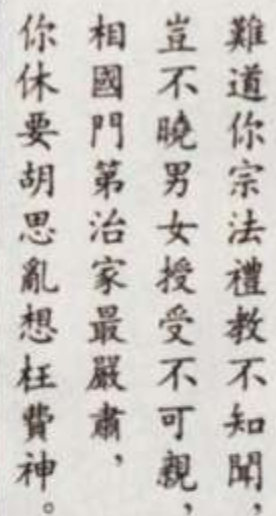 難道你宗法禮教不知聞，
豈不曉男女授受不可親，
相國門第治家最嚴肅，
你休要胡思亂想枉費神。